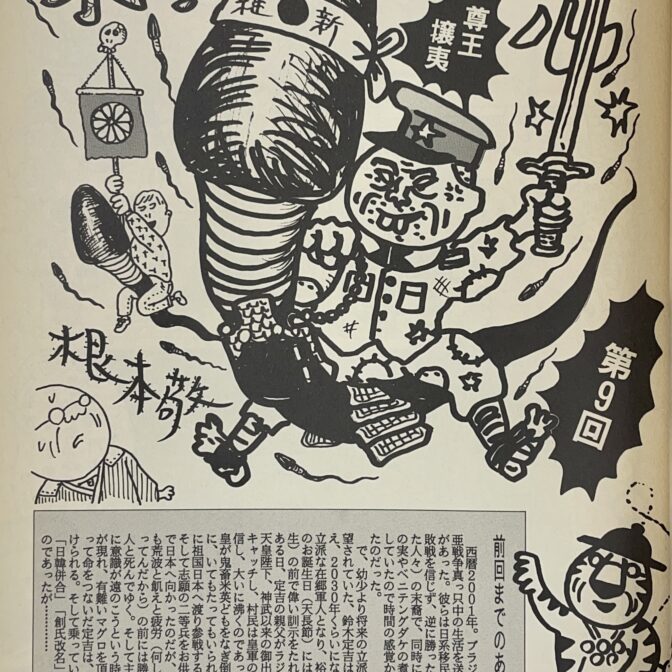 維新
尊王
攘夷
根本敬
第9回
前回までのあ
西暦２００１年。ブラジ
亜戦争真っ只中の生活を送
があった。彼らは日系移民
敗戦を信じず、逆に勝った
た人々）の末裔で、同時に
の実やベニテングダケの煮
していたので時間の感覚が
たのだった。
で、幼少より将来の立派
望されていた、鈴木定吉は
え、２０３０年くらいにな
立派な在郷軍人となり、裕
のお誕生日（天長節）には
生）の前で偉い訓示をたれ
ある日、定吉の親父がラジ
天皇陛下、神武以来の御
キャッチし、村民は皇軍
信し、大いに沸くのであっ
皇が鬼畜米英どもをなぎ倒
に、いてもたってもいられ
に祖国日本へ渡り参戦する
そして志願の二等兵をお供
で日本へ向かったのだが、
も荒波と飢えと疲労（何し
ってんだから）の前には勝
人と死んでゆく。そして主
に意識が遠のこうという時
が現れ、有難いマグロを頂
って命をつないだ定吉は、
けられる。そして乗ってい
「日韓併合」「創氏改名」
のであったが………